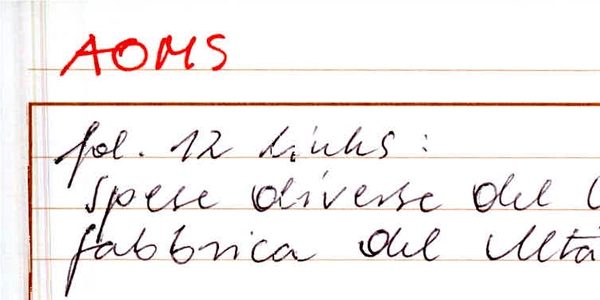 AOMS
fol. 12 links:
Spese diverse del
fabbrica del